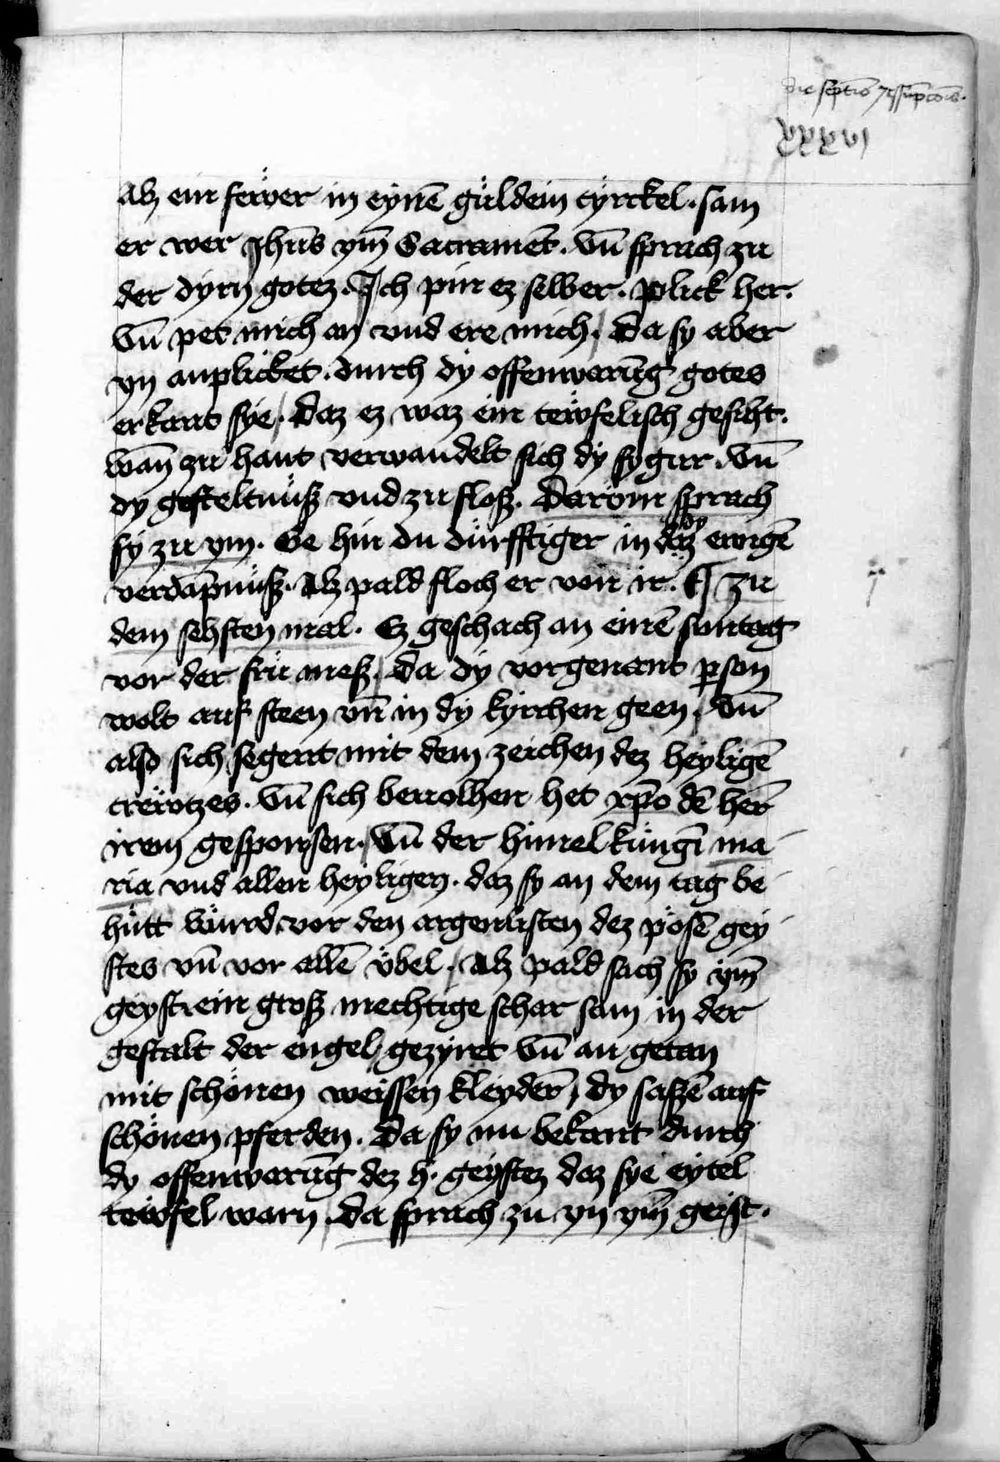 xxxvj
Alz ein fewer in eynē guldein cyrckel. sam
er wer Jhūs ym̄ Sacramēt. Vn̄ sprach zu
der dyrn gotez. Jch pin ez selber. plick her.
Vn̄ pet mich an vnd ere mich. Da sy aber
yn anplicket. durch dy offenwarūg gotes
erkant sye. Daz ez waz ein tewfelisch gesiht.
Wan̄ zu hant verwandelt sich dy sygur. Vn̄
dy gesteltnuͤsz vnd zu flosz. Darvm sprach
sy zu ym. Ge hin du duͤrfftiger in daz dy ewigē
verdāpnuͤsz. Alz pald floch er von ir. ¶ Zu
dem sehsten mal. Ez geschach an einē suntag
vor der fru mesz. Da dy vorgenant ꝑson
wolt auf steen vn̄ in dy kyrchen geen. Vn̄
also sich segent mit dem zeichen dez heyligē
crewtzes. Vn̄ sich beuolhen het xp̄o dē her̄
irem gesponsen. Vn̄ der himelkungī ma
ria vnd allen heyligen. daz sy an dem tag be
huͤtt wuͤrd vor den argenlisten dez poͤsē gey
stes vn̄ vor allē vͤbel. Alz pald sach sy ym̄
geyst ein grosz mechtige schar sam in der
gestalt der engel gezyret Vn̄ an getan
mit schoͤnen weissen kleyder̄, dy saszē auf
schoͤnen pferden. Da sy nu bekant durch
dy offenwarūg dez h. geystez daz sye eytel
tewfel warn. da sprach zu yn ym̄ geist.